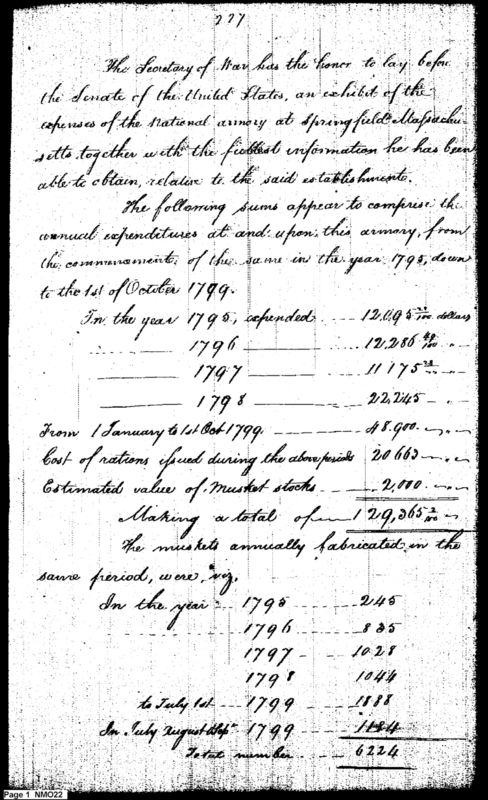 227
The Secretary of War has the honor to lay before
the Senate of the United States, an exhibit of the
expenses of the National armory at Springfield Massachu-
setts, together with the fullest information he has been
able to obtain, relative to the said establishment.
The following sums appear to comprise the
annual expenditures at and upon this armory, from
the commencement, of the same in the year 1795, down
to the 1st of October 1799.
In the year 1795, expended 12,095 dollars
1796 12,286 "
1797 11175 "
1798 22,245 "
From 1 January to 1st Oct 1799 48,900 "
Cost of rations issued during the above periods 20663 "
Estimated value of Musket stocks 2,000 "
Making a total of 129,365 2/100
The muskets annually fabricated in the
same period, were, viz.
In the year 1795 245
1796 835
1797 1028
1798 1044
to July 1st 1799 1888
In July August & Sept 1799 1184
Total number 6224
Page 1 NMO22